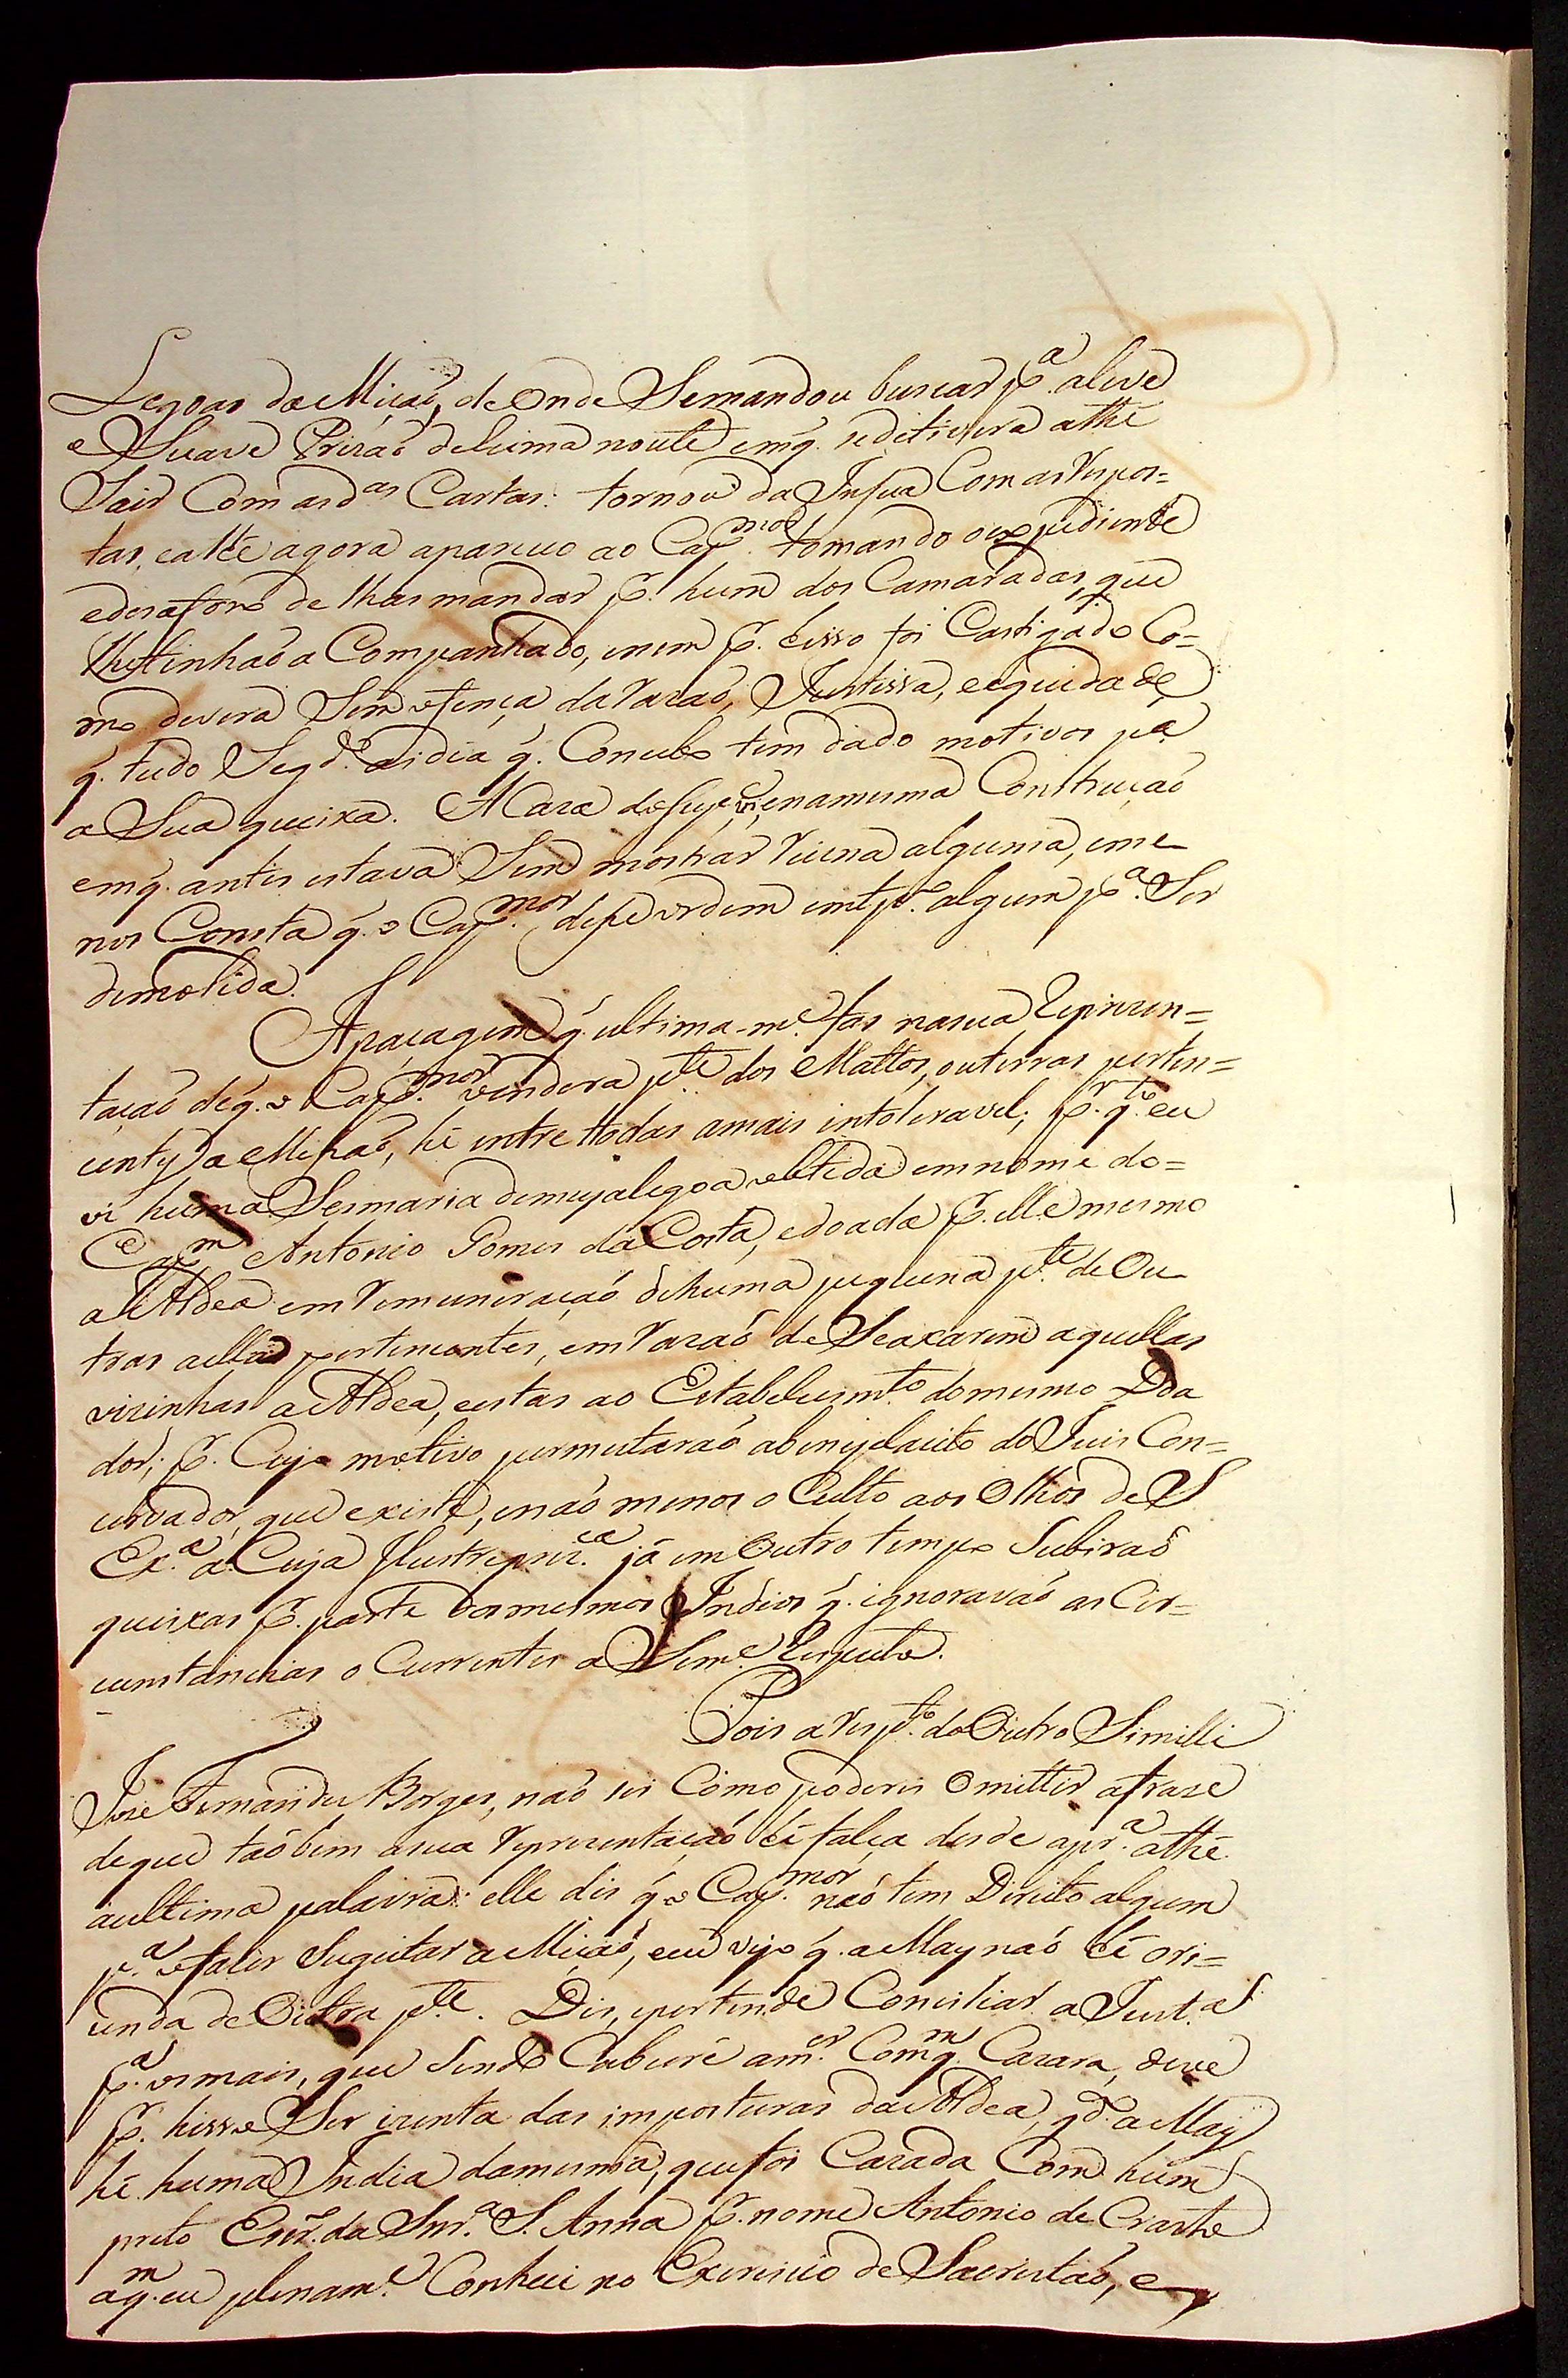 Legoas da Miçaõ, de Onde Semandou buscar p.ª aleve
e Suave Prizaõ dehuma noute emq̃. sedetivera athé
Sair Com asd.as Cartas: tornou da Insua Com as Respos=
tas, eathé agora apareceo ao Cap.m mor tomando oexpediente
edesaforo de lhas mandar p̱. hum dos Camaradas, que
lhetinhaõ a Companhado, enem p̱. hisso foi Castigado Co=
mo devera Sem ofença da Razaõ, Justissa, eequidade
q̃. tudo Segd.º aidia q̃. Concebo tem dado motivos pª
a Sua queixa. A Caza deSuje.º enamesma Construçaõ
emq̃. antes estava Sem mostrar Ruina alguma, eme
nos Consta q̃. o Cap.m mor desse ordem emtp.º algum p.ª Ser
demolida.
Apaçagem q̃. ultima-m.e fas nasua Reprezen=
taçaõ deq̃. o Cap.m mor vendera p.te dos Mattos, outerras perten=
centes a Missaõ, hé entre ttodas amais intoleravel; p̱.r q.to eu
vi huma Sesmaria demeyalegoa obtida emnome do=
Cap.m Antonio Gomes da Costa, edoada p̱. elle mesmo
a Aldea em Remuneraçaõ dehuma pequena p.te de Ou
tras aella pertencentes, em Razaõ de Seaxarem aquellas
vizinhas a Aldea, eestas ao Estabelecim.to domesmo Doa
dor; p̱. Cujo motivo permutaraõ abeneplacito do Juis Con=
cervador, que existe, enaõ menos o Culto aos Olhos de S
Ex.ª a Cuja Illustreprez.ca já em Outro tempo Subiraõ
queixas p̱. parte dosmesmos Indios q̃. ignoravaõ as Cir=
cunstancias o Currentes a Sem.e Respeito.
Pois a Resp.to do Outro Simille
Joze Fernandes Borges, naõ sei Como poderei Omittir afraze
deque taõbem asua Reprezentaçaõ hé falça desde apr.ª athé
aultima palavra: elle dis q̃. o Cap.m mor naõ tem Direito algum
p.ª ofazer Sugeitar a Miçaõ, eeu vejo q̃. a May naõ hé ori=
unda de Outra p.te. Dis, epertende Conciliar a Just.ª
p.ª osmais, que Sendo Caburé am.er Comq.m Cazara, deve
p̱. hisso Ser izenta das imposturas da Aldea, q.do a May
hé huma India damesma, que foi Cazada Com hum
preto Escr.º da Snr.ª S. Anna p̱. nome Antonio de Crasto
aq.m eu plenam.e Conheci no Exercicio de Sacristaõ, e